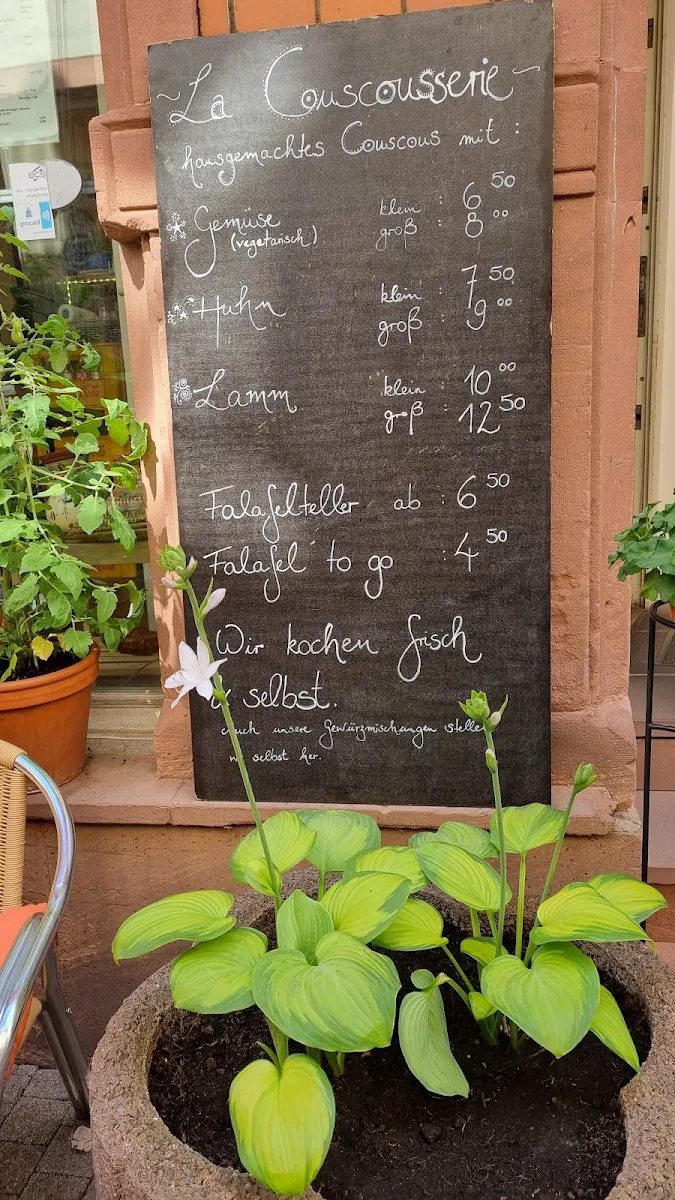 ~ La Couscousserie ~
hausgemachtes Couscous mit :
Gemüse klein : 6 50
(vegetarisch) groß : 8 00
Huhn klein : 7 50
groß : 9 00
Lamm klein : 10 00
groß : 12 50
Falafelteller ab : 6 50
Falafel to go : 4 50
Wir kochen frisch
selbst.
auch unsere Gewürzmischungen stelle
selbst her.
girocard